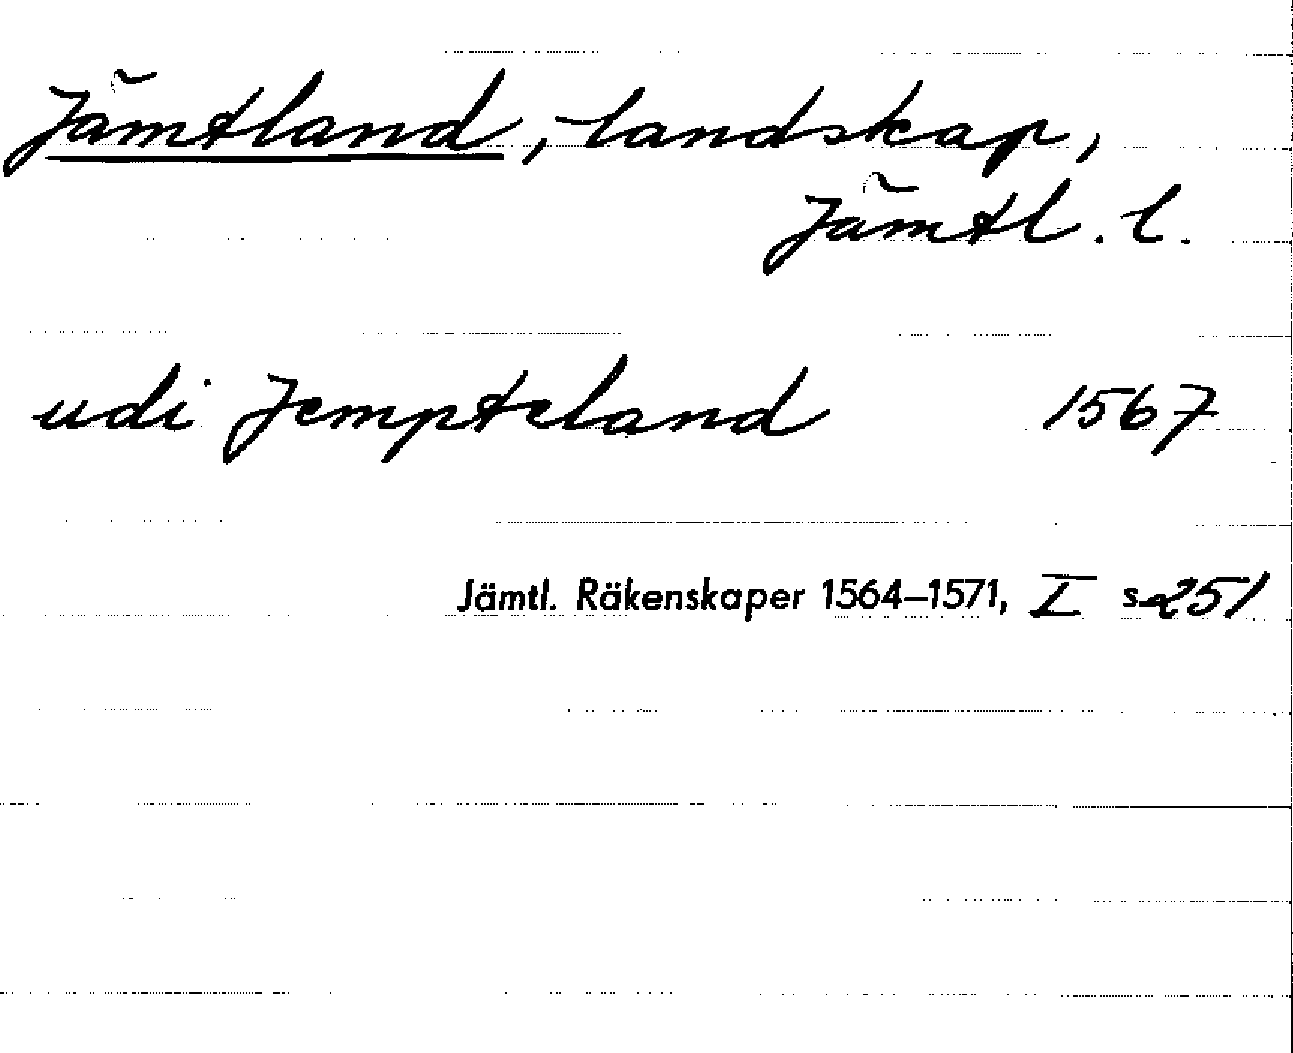 Jämtland, landskap,
Jämtl. l.
udi Jempteland 1567
Jämtl. Räkenskaper 1564–1571, I s 251